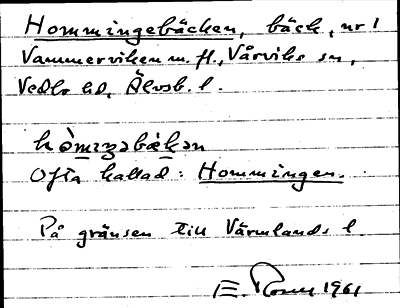 Hommingebäcken, bäck, nr 1
Vammerviken m. fl., Vårviks sn,
Vedbo hd, Älvsb. l.
hòmiŋəbäkən
Ofta kallad: Hommingen.
På gränsen till Värmlands l.
E. Rosell 1961